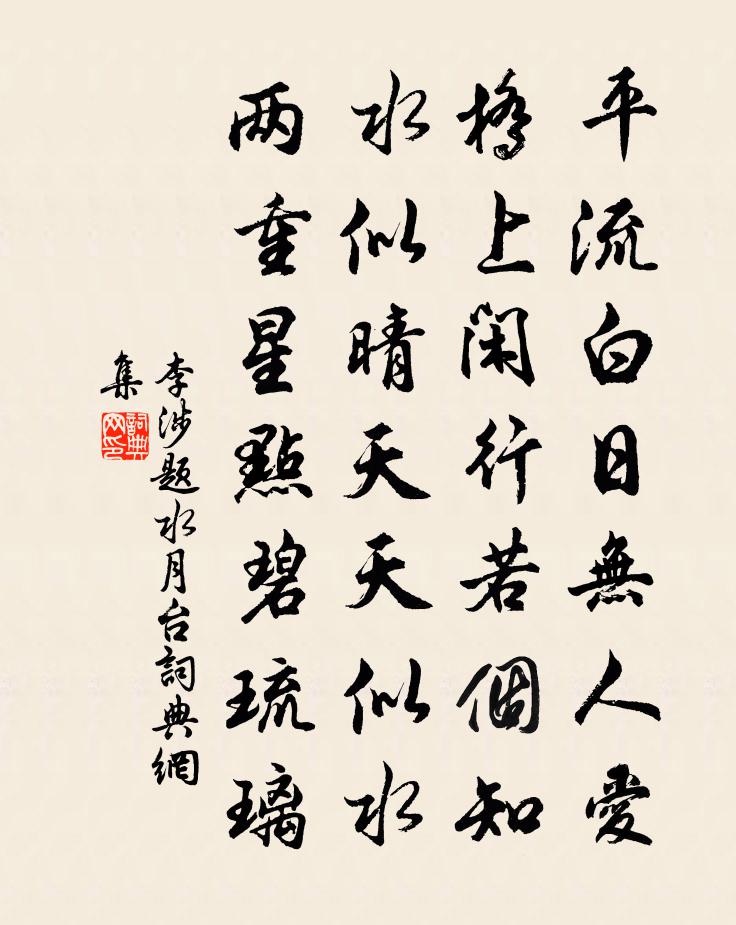 平流白日無人愛
橋上閑行若個知
水似晴天天似水
两重星點碧琉璃
李涉题水月台詞典網
集
詞典
网印